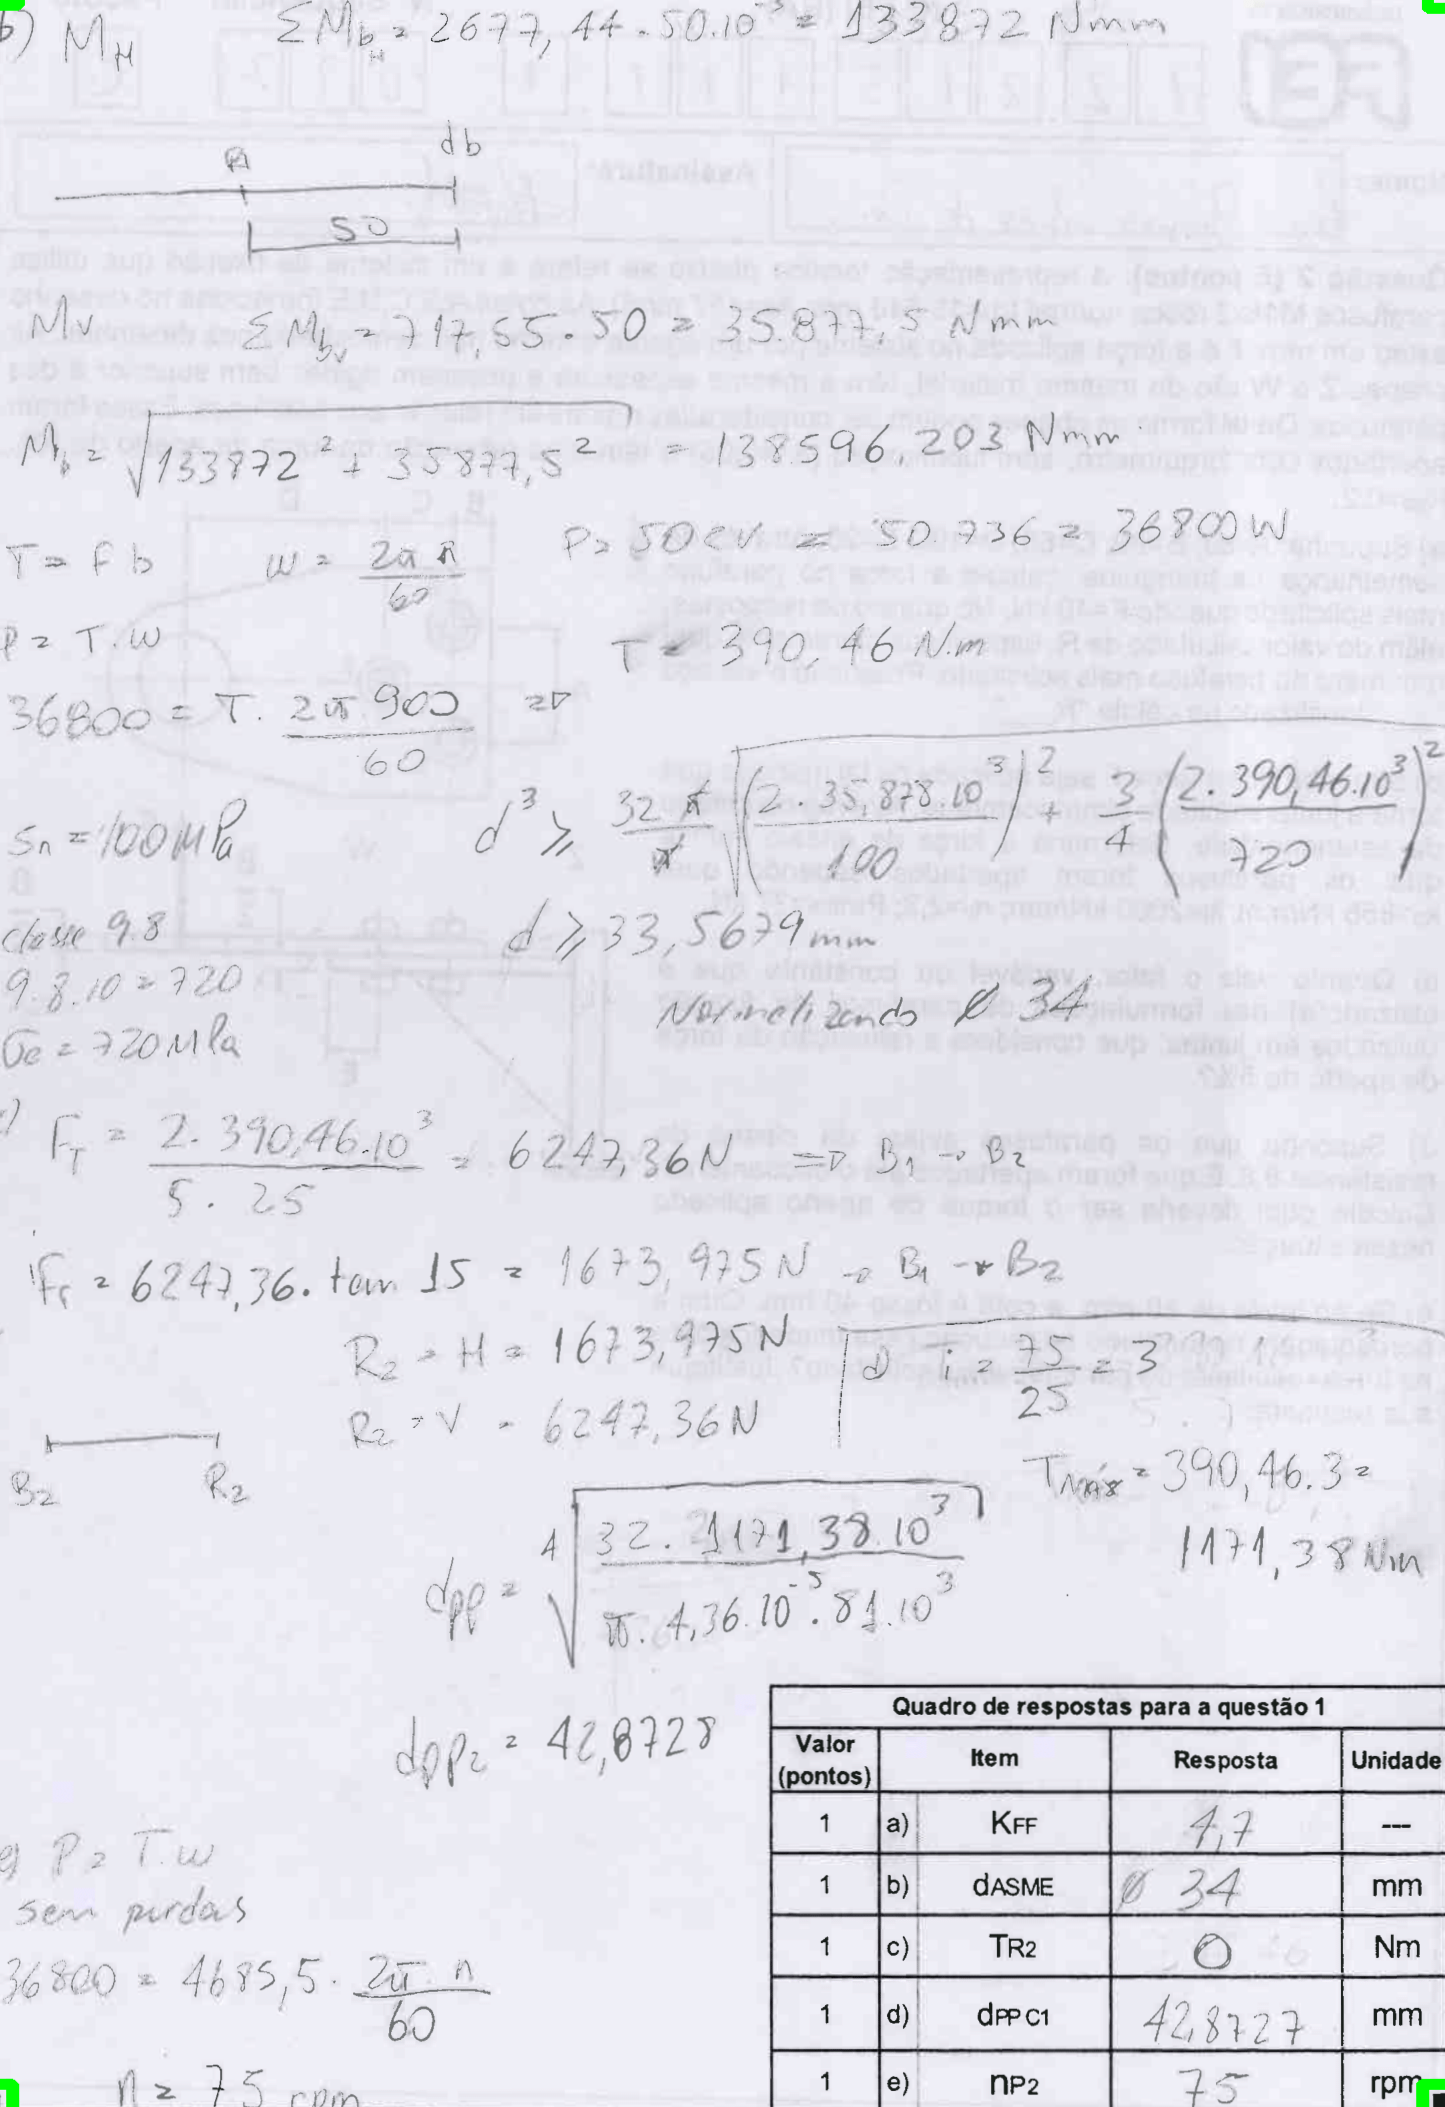 b) MH ΣMbH = 2677,44 . 50.10⁻³ = 133872 Nmm
A db
50
MV ΣMbV = 717,55 . 50 = 35.877,5 Nmm
Mb = √(133872² + 35877,5²) = 138.596,203 Nmm
T = f b w = 2π n / 60 P = 50 cv = 50.736 = 36800 W
P = T.w T = 390,46 N.m
36800 = T. 2π.900 / 60 =>
Sn = 100 MPa d³ ≥ 32 π / π √((2 . 35,878.10³ / 100)² + 3/4 (2.390,46.10³ / 720)²)
classe 9.8 d ≥ 33,5679 mm
9.8.10 = 720 Normelizando ø 34
σe = 720 MPa
c) FT = 2.390,46.10³ / 5 . 25 = 6247,36 N => B1 → B2
Fr = 6247,36. tan 15 = 1673,975 N → B1 → B2
R2 = H = 1673,975 N
d Ti = 75 / 25 = 3
R2 = V = 6247,36 N
B2 R2
Tmáx = 390,46.3 =
1171,38 Nm
dpp = ⁴√(32. 1171,38.10³ / π. 4,36.10⁻⁵. 81.10³)
dpp2 = 42,8728
e) P = T.w
sem perdas
36800 = 4685,5 . 2π. n / 60
n = 75 rpm
Quadro de respostas para a questão 1
Valor (pontos) Item Resposta Unidade
1 a) KFF 4,7 ---
1 b) dASME ø 34 mm
1 c) TR2 0 Nm
1 d) dPP C1 42,8727 mm
1 e) nP2 75 rpm